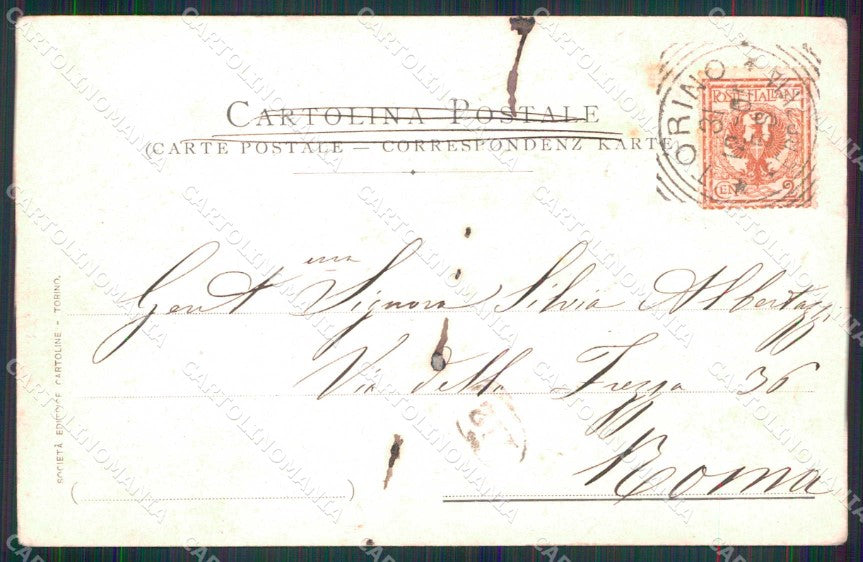 CARTOLINA POSTALE
(CARTE POSTALE — CORRESPONDENZ KARTE
POSTE ITALIANE
CEN 2
TORINO
Gent ma Signora Silvia Albertazzi
Via della Frezza 36
Roma
SOCIETÀ EDITRICE CARTOLINE - TORINO.
CARTOLINOMANIA